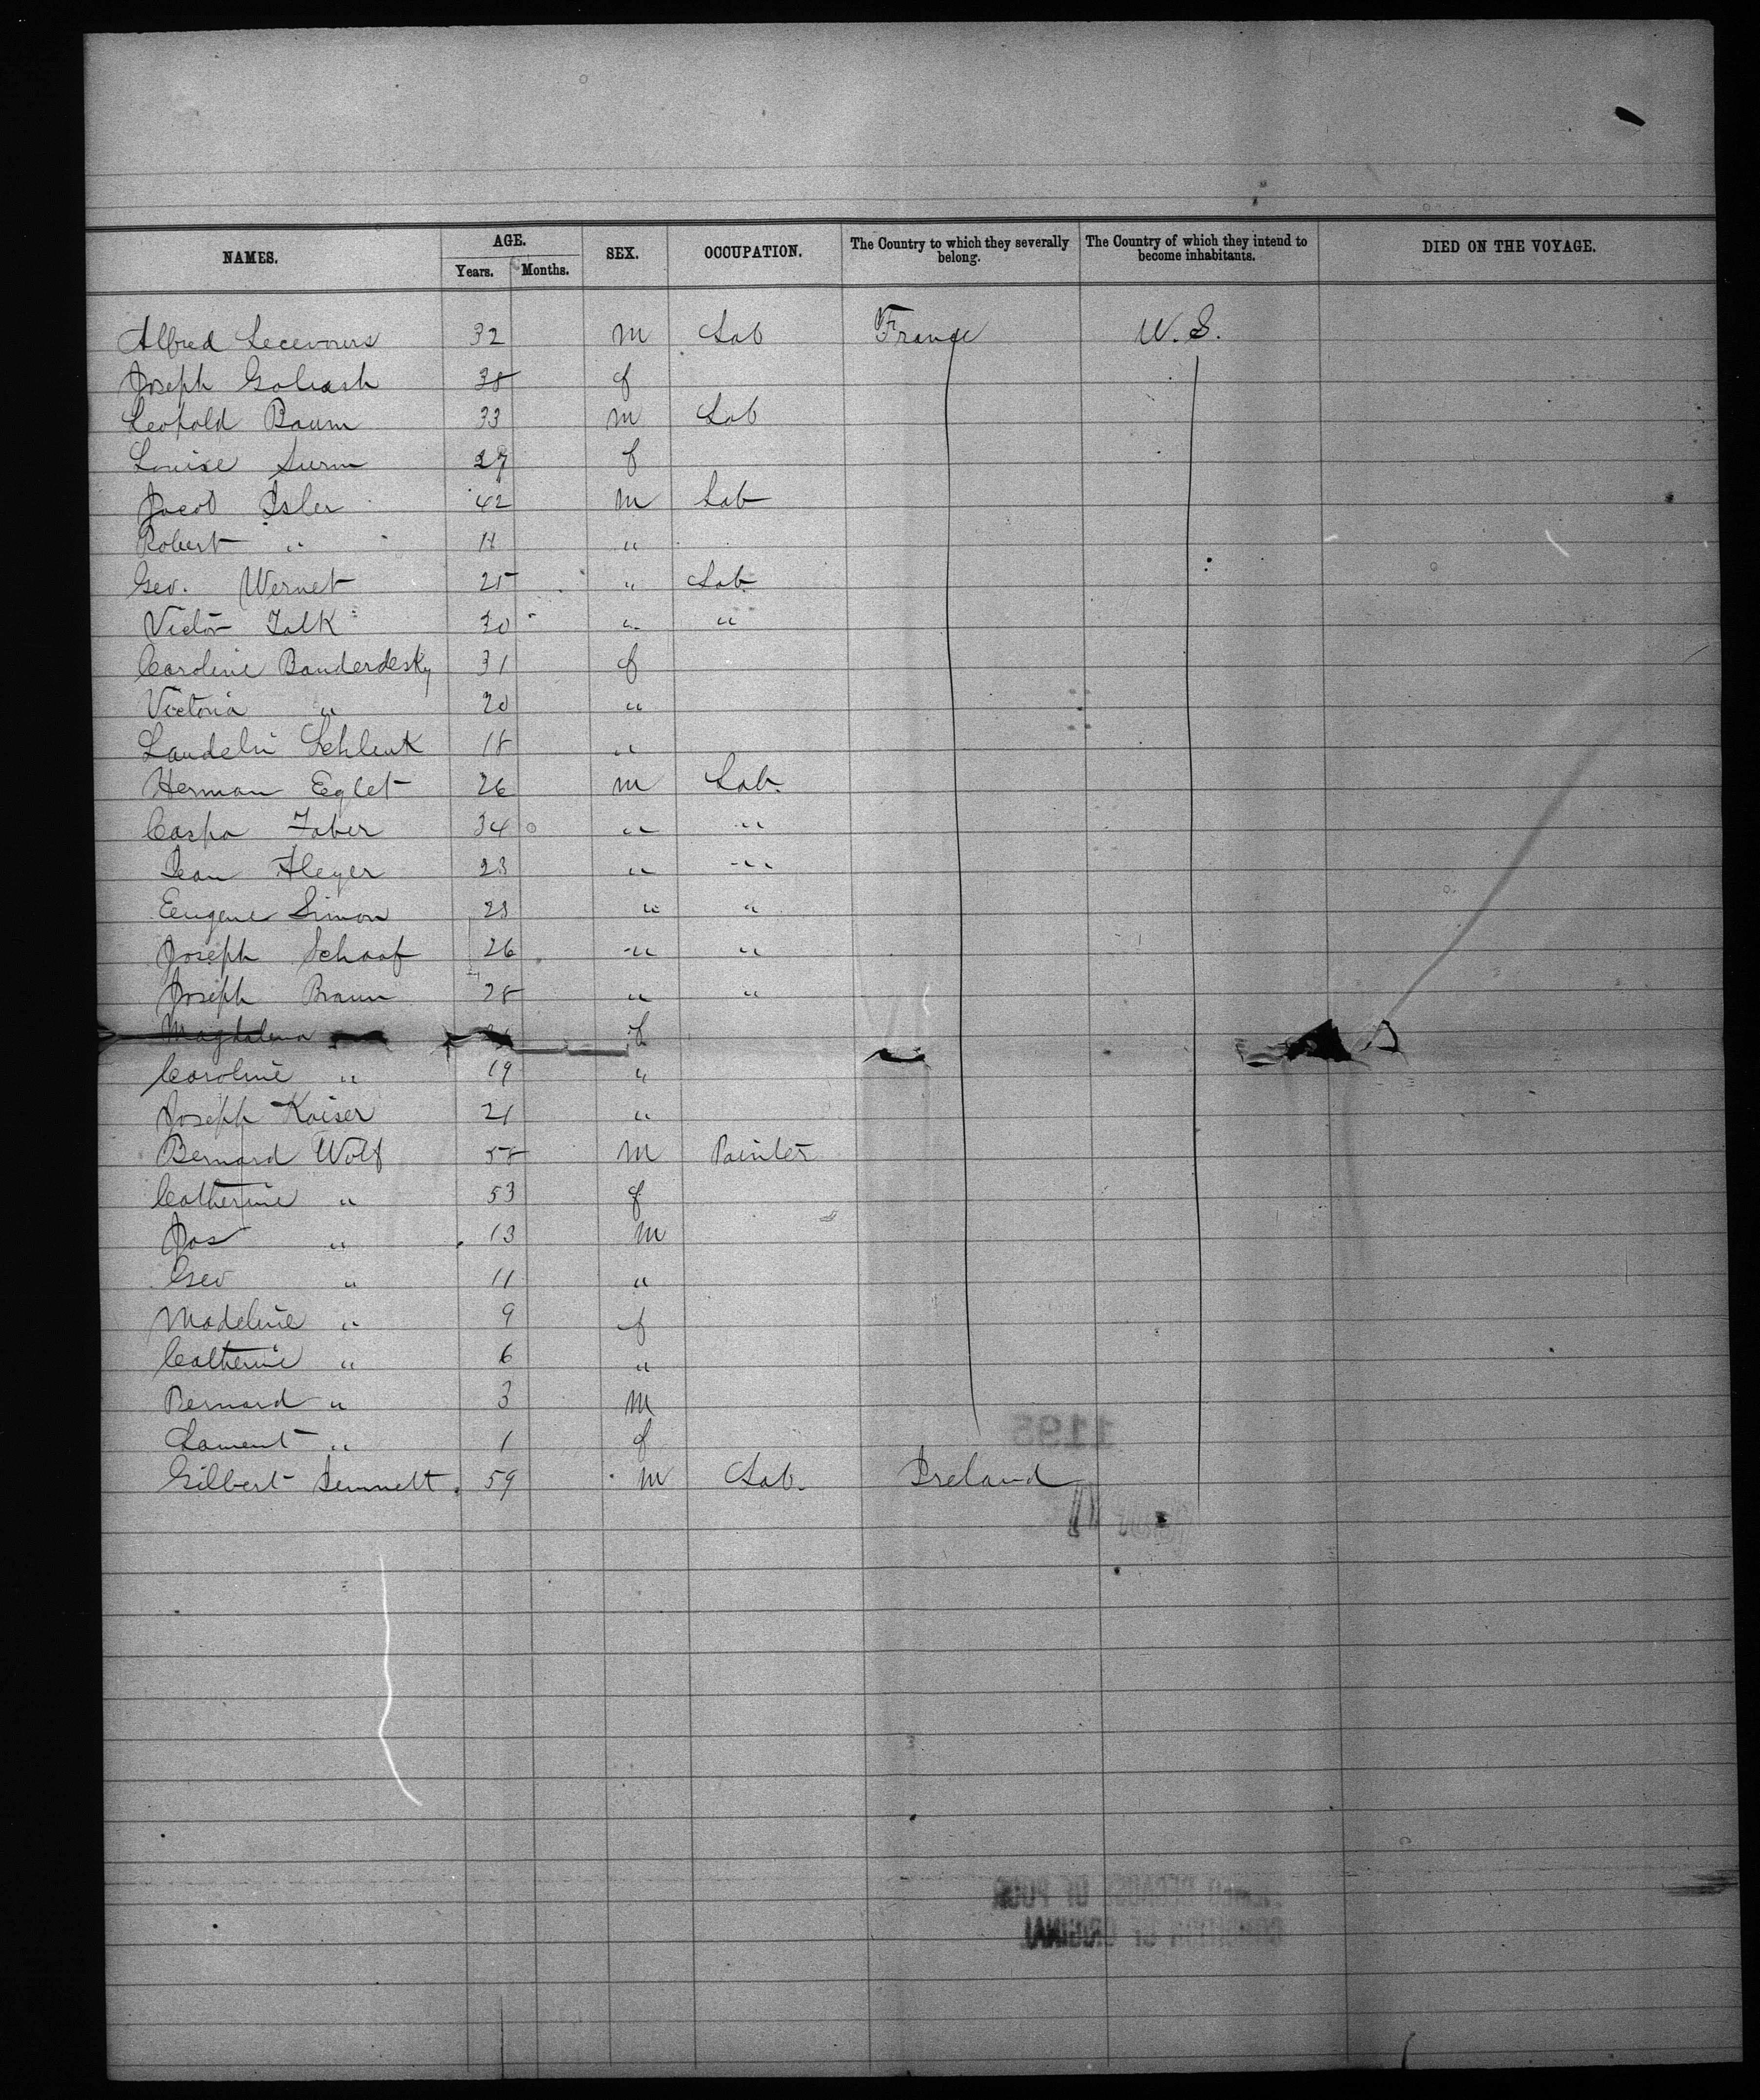 NAMES. AGE. SEX. OCCUPATION. The Country to which they severally belong. The Country of which they intend to become inhabitants. DIED ON THE VOYAGE.
Years. Months.
Alfred Lecevours 32 m Lab France U.S.
Joseph Goliash 38 f
Leopold Baum 33 m Lab
Louise 27 f
Jacob Isler 42 m Lab
Robert " 11 "
Geo. Wernet 25 " Lab
Victor Falk 30 " "
Caroline Banderdesky 31 f
Victoria " 20 "
Landelin Schlenk 18 "
Herman Eglet 26 m Lab.
Caspa Faber 34 " "
Jean Heyer 23 " "
Eugene Simon 23 " "
Joseph Schaaf 26 " "
Joseph Braun 28 " "
Magdalena f
Caroline " 19 "
Joseph Kaiser 21 "
Bernard Wolf 58 m Painter
Catherine " 53 f
Jos " 13 m
Geo " 11 "
Madeline " 9 f
Catherine " 6 "
Bernard " 3 m
Lament " 1 f
Gilbert Sennett. 59 m Lab. Ireland
1195
BECAUSE OF POOR
CONDITION OF ORIGINAL